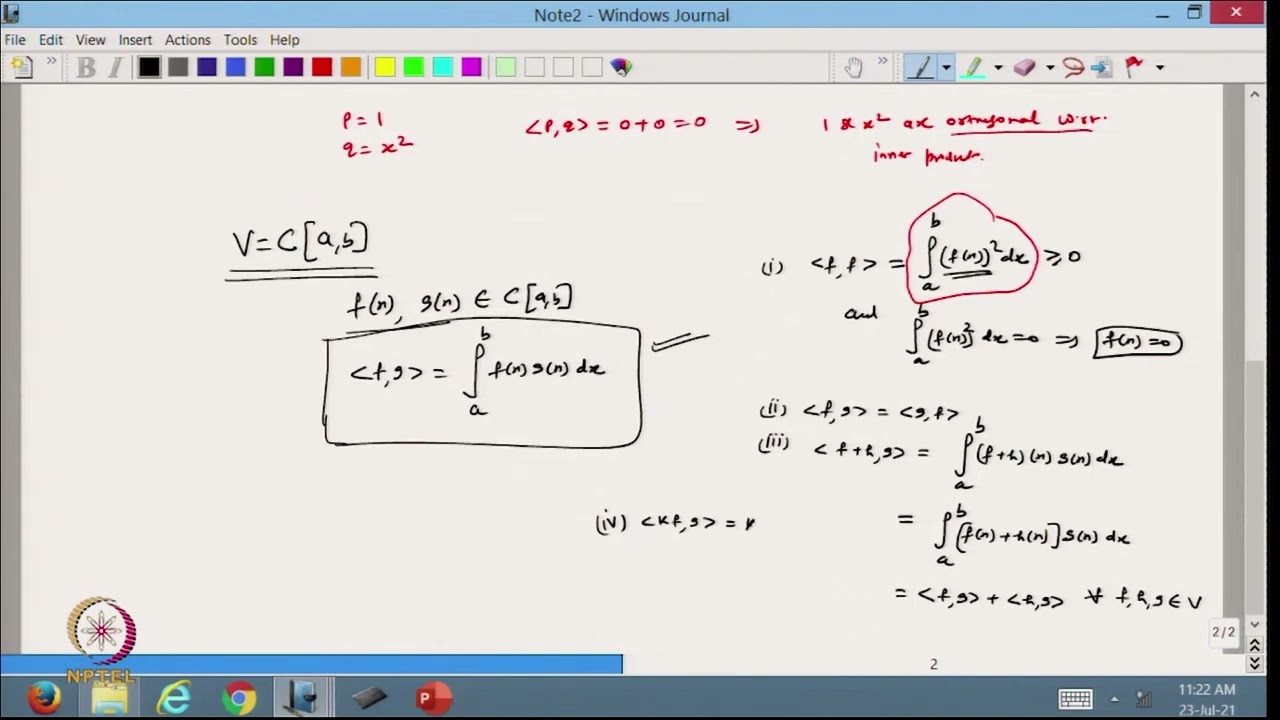 Note2 - Windows Journal
File Edit View Insert Actions Tools Help
B I
p = 1
q = x²
<p,q> = 0+0 = 0 => 1 & x² are orthogonal w.r.t.
inner product.
V = C[a,b]
f(x), g(x) ∈ C[a,b]
<f,g> = ∫_a^b f(x) g(x) dx
(i) <f,f> = ∫_a^b (f(x))² dx ≥ 0
and ∫_a^b (f(x))² dx = 0 => f(x) = 0
(ii) <f,g> = <g,f>
(iii) <f+h,g> = ∫_a^b (f+h)(x) g(x) dx
= ∫_a^b [f(x)+h(x)] g(x) dx
= <f,g> + <h,g> ∀ f,h,g ∈ V
(iv) <kf,g> =
2/2
2
NPTEL
11:22 AM
23-Jul-21